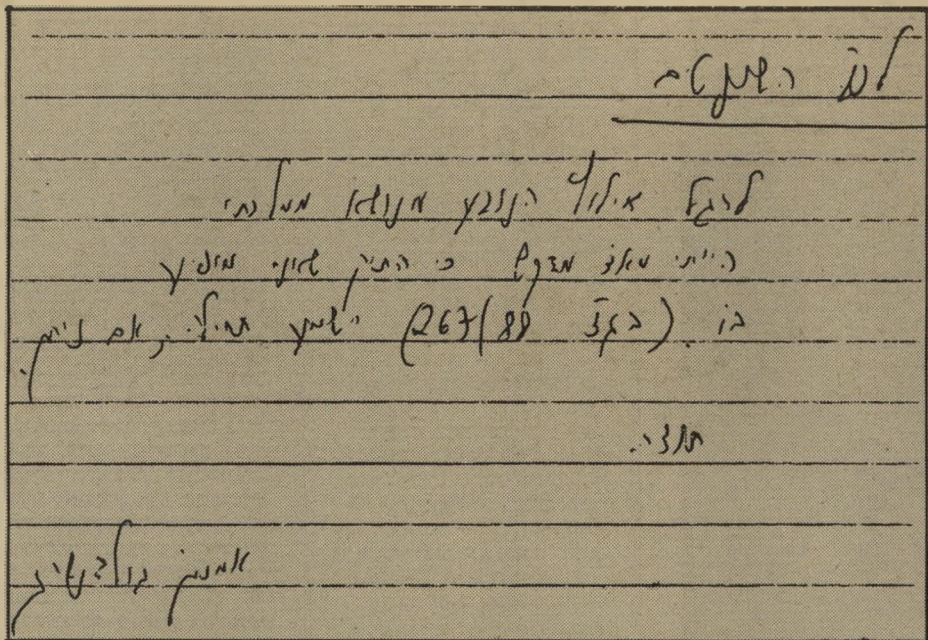 לכב' השופטים
לרגל אילוץ הנובע מנושא ממלכתי
הייתי מאד מבקש כי התיק שאני מופיע
בו (בגצ 267/88) ישמע תחילה, אם ניתן.
תודה.
אמנון גולדנברג